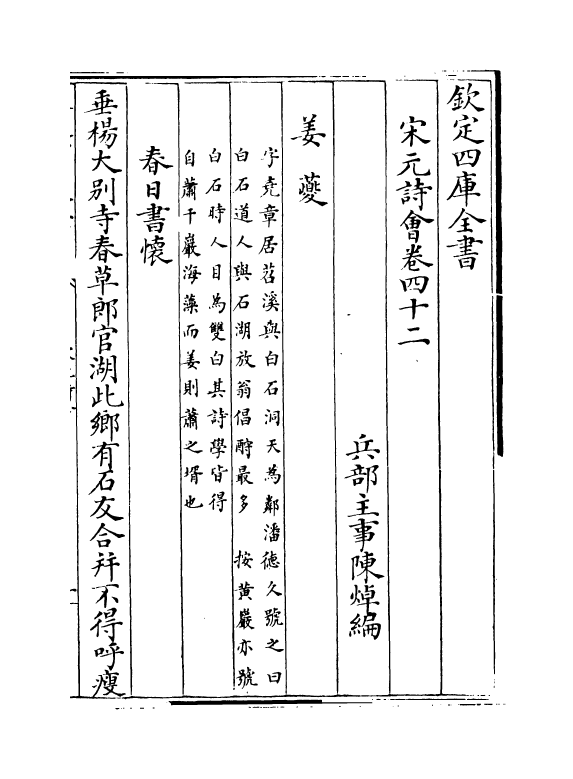 欽定四庫全書
宋元詩會卷四十二
兵部主事陳焯編
姜夔
字堯章居苕溪與白石洞天為鄰潘德久號之曰
白石道人與石湖放翁倡酧最多 按黄巖亦號
白石時人目為雙白其詩學皆得
自蕭千巖海藻而姜則蕭之壻也
春日書懷
垂楊大别寺春草郎官湖此鄉有石友合并不得呼瘦